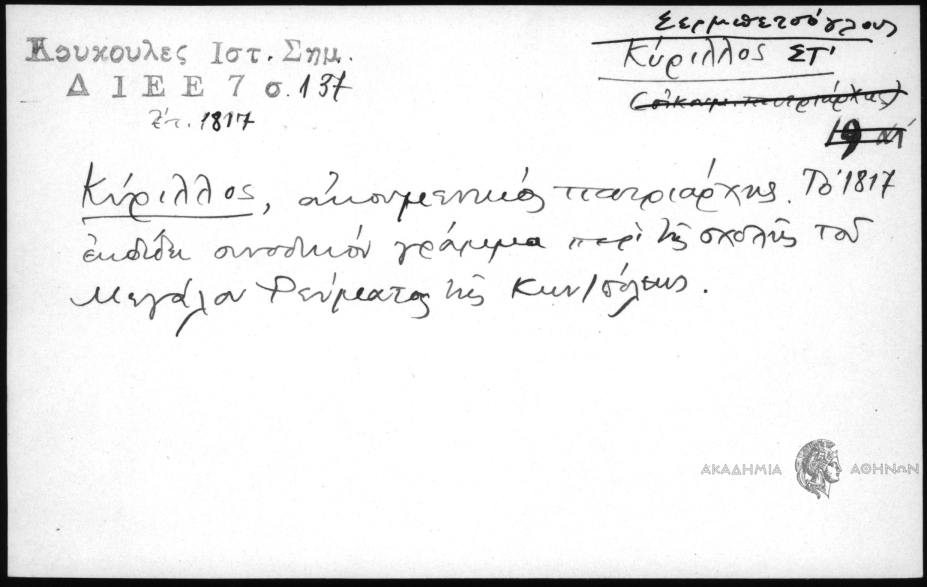 Κουκουλες Ιστ. Σημ.
Δ Ι Ε Ε 7 σ. 137
Ἔτ. 1817
Σερμπετσόγλους
Κύριλλος ΣΤ'
(οἰκουμ. πατριάρχης)
19
Κύριλλος, οἰκουμενικός πατριάρχης. Τό 1817
ἐκδίδει συνοδικόν γράμμα περί τῆς σχολῆς τοῦ
Μεγάλου Ρεύματος τῆς Κων/πόλεως.
ΑΚΑΔΗΜΙΑ ΑΘΗΝΩΝ